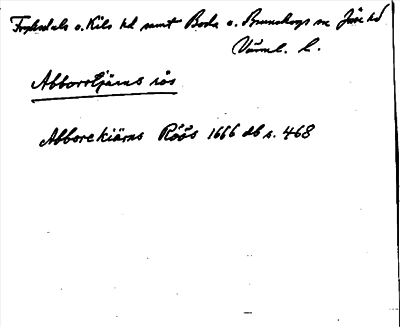 Fryksdals o. Kils hd samt Boda o. Brunskogs sn Jösse hd
Värml. l.
Abborrtjärns rös
Abborekiärns Röös 1666 db s. 468